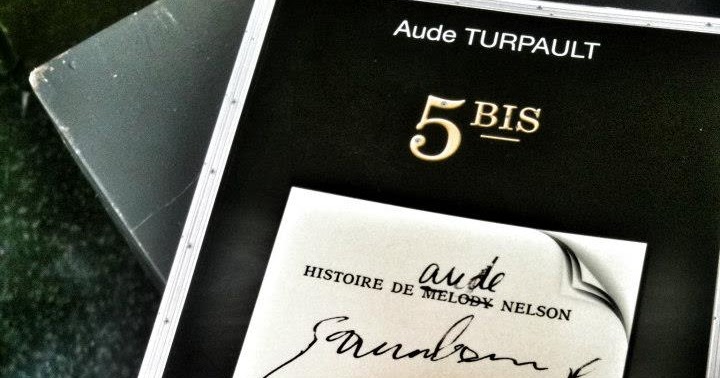 Aude TURPAULT
5 BIS
aude
HISTOIRE DE MELODY NELSON